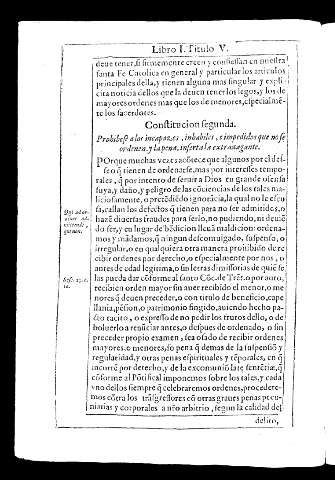 Libro I. Titulo V.
deue tener, si firmemente creen y confiessan en nuestra
santa Fe Catolica en general y particular los articulos
principales della, y tienen alguna mas singular y expli
cita noticia dellos que la deuen tener los legos, y los de
mayores ordenes mas que los de menores, especialmē-
te los sacerdotes.
Constitucion segunda.
Prohibese a los incapazes, inhabiles, e impedidos que no se
ordenen, y la pena, inserta la extrauagante.
POrque muchas vezes acōtece que algunos por el des-
seo q̄ tienen de ordenarse, mas por interesses tempo-
rales, q̄ por intento de seruir a Dios en grande ofensa
suya, y daño, y peligro de las cōciencias de los tales ma-
liciosamente, o pretēdiēdo ignorācia, la qual no le escu
sa, callan los defectos q̄ tienen para no ser admitidos, o
hazē diuersas fraudes para serlo, no pudiendo, ni deuiē
do ser, y en lugar de bēdicion lleuā maldicion: ordena-
mos y mādamos, q̄ ningun descomulgado, suspenso, o
irregular, o en qualquiera otra manera prohibido de re
cibir ordenes por derecho, o especialmente por nos, o
antes de edad legitima, o sin letras dimissorias de quiē se
las pueda dar cōforme al santo Cōc. de Trēt. o por auto,
reciban orden mayor sin auer recibido el menor, o me
nores q̄ deuen preceder, o con titulo de beneficio, cape
llania, pēsion, o patrimonio fingido, auiendo hecho pa-
cto tacito, o expresso de no pedir los frutos dello, o de
boluerlo a renūciar antes, o despues de ordenado, o sin
preceder propio examen, sea osado de recibir ordenes
mayores, o menores, so pena q̄ demas de la suspensiō y
regularidad, y otras penas espirituales y tēporales, en q̄
incurrē por derecho, y de la excomuniō latę sententię, q̄
cōforme al Pōtifical imponemos sobre los tales, y cada
vno dellos siempre q̄ celebraremos ordenes, procedere-
mos cōtra los trāsgressores cō otras graues penas pecu-
niarias y corporales a nr̄o arbitrio, segun la calidad del
delito,